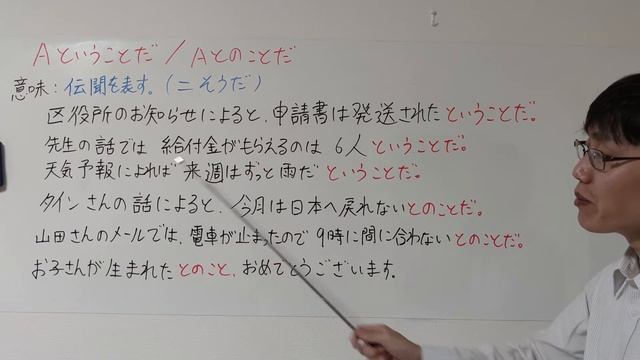 Aということだ / Aとのことだ
意味：伝聞を表す。（＝そうだ）
区役所のお知らせによると、申請書は発送されたということだ。
先生の話では 給付金がもらえるのは 6人ということだ。
天気予報によれば 来週はずっと雨だということだ。
タインさんの話によると、今月は日本へ戻れないとのことだ。
山田さんのメールでは、電車が止まったので 9時に間に合わないとのことだ。
お子さんが生まれたとのこと、おめでとうございます。